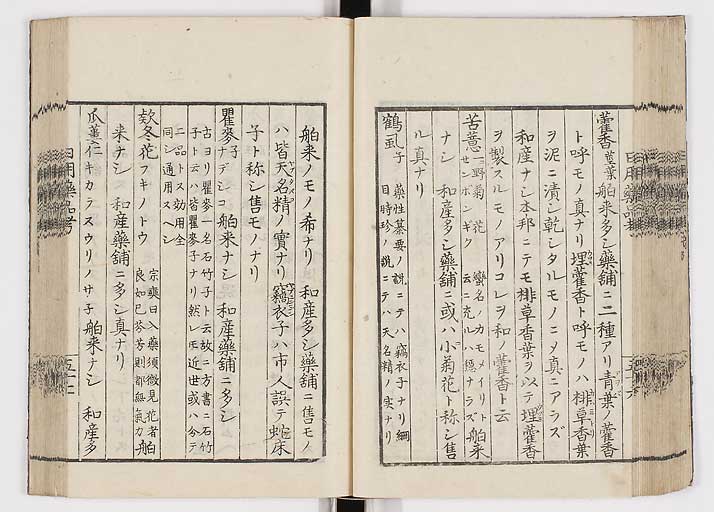 藿香 葉 舶来多シ藥舗ニ二種アリ青葉ノ藿香
ト呼モノ真ナリ埋藿香ト呼モノハ排草香葉
ヲ泥ニ漬シ乾シタルモノニノ真ニアラズ
和産ナシ本邦ニテモ排草香葉ヲ以テ埋藿香
ヲ製スルモノアリコレヲ和ノ藿香ト云
苦薏 一野菊花 蠻名ノカモメイリト
センボンギク 云ニ充ルハ穏ナラズ 舶来
ナシ 和産多シ藥舗ニ或ハ小菊花ト称シ售
ル真ナリ
鶴虱子 藥性纂要ノ説ニテハ竊衣子ナリ綱
目時珍ノ説ニテハ天名精ノ実ナリ
舶来ノモノ希ナリ 和産多シ藥舗ニ售モノ
ハ皆天名精ノ實ナリ竊衣子ハ市人誤テ蛇床
子ト称シ售モノナリ
瞿麥子 ナデシコ 舶来ナシ 和産藥舗ニ多シ
古ヨリ瞿麥一名石竹子ト云故ニ方書ニ石竹
子ト云ハ皆瞿麥子ナリ然レ𪜈近世或ハ分テ
二品トス効用全
同シ通用スヘシ
欵冬花 フキノトウ 宗奭曰入藥須微見花者
良如已芬芳則都無氣力 舶
来ナシ 和産藥舗ニ多シ真ナリ
瓜蔞仁 キカラスウリノサ子 舶来ナシ 和産多
日用藥品考
日用藥品考